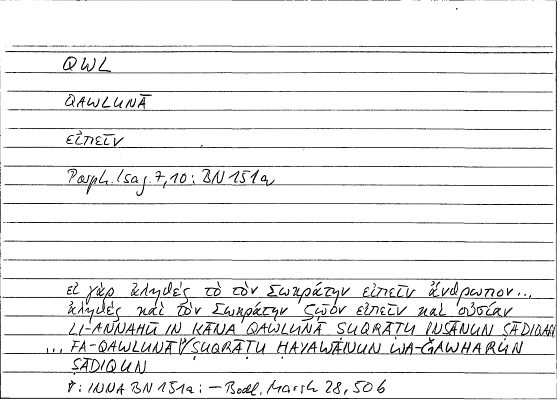 QWL
QAWLUNĀ
εἰπεῖν
Porph. Isag. 7,10: BN 151a
εἰ γὰρ ἀληθές τὸ τὸν Σωκράτην εἰπεῖν ἄνθρωπον...,
ἀληθές καὶ τὸν Σωκράτην ζῷον εἰπεῖν καὶ οὐσίαν
LI-ANNAHŪ IN KĀNA QAWLUNĀ SUQRĀTU INSĀNUN ṢĀDIQAN
... FA-QAWLUNĀ SUQRĀTU HAYAWĀNUN WA-ǦAWHARUN
ṢĀDIQUN
: INNA BN 151a: — Bodl. Marsh 28, 50b